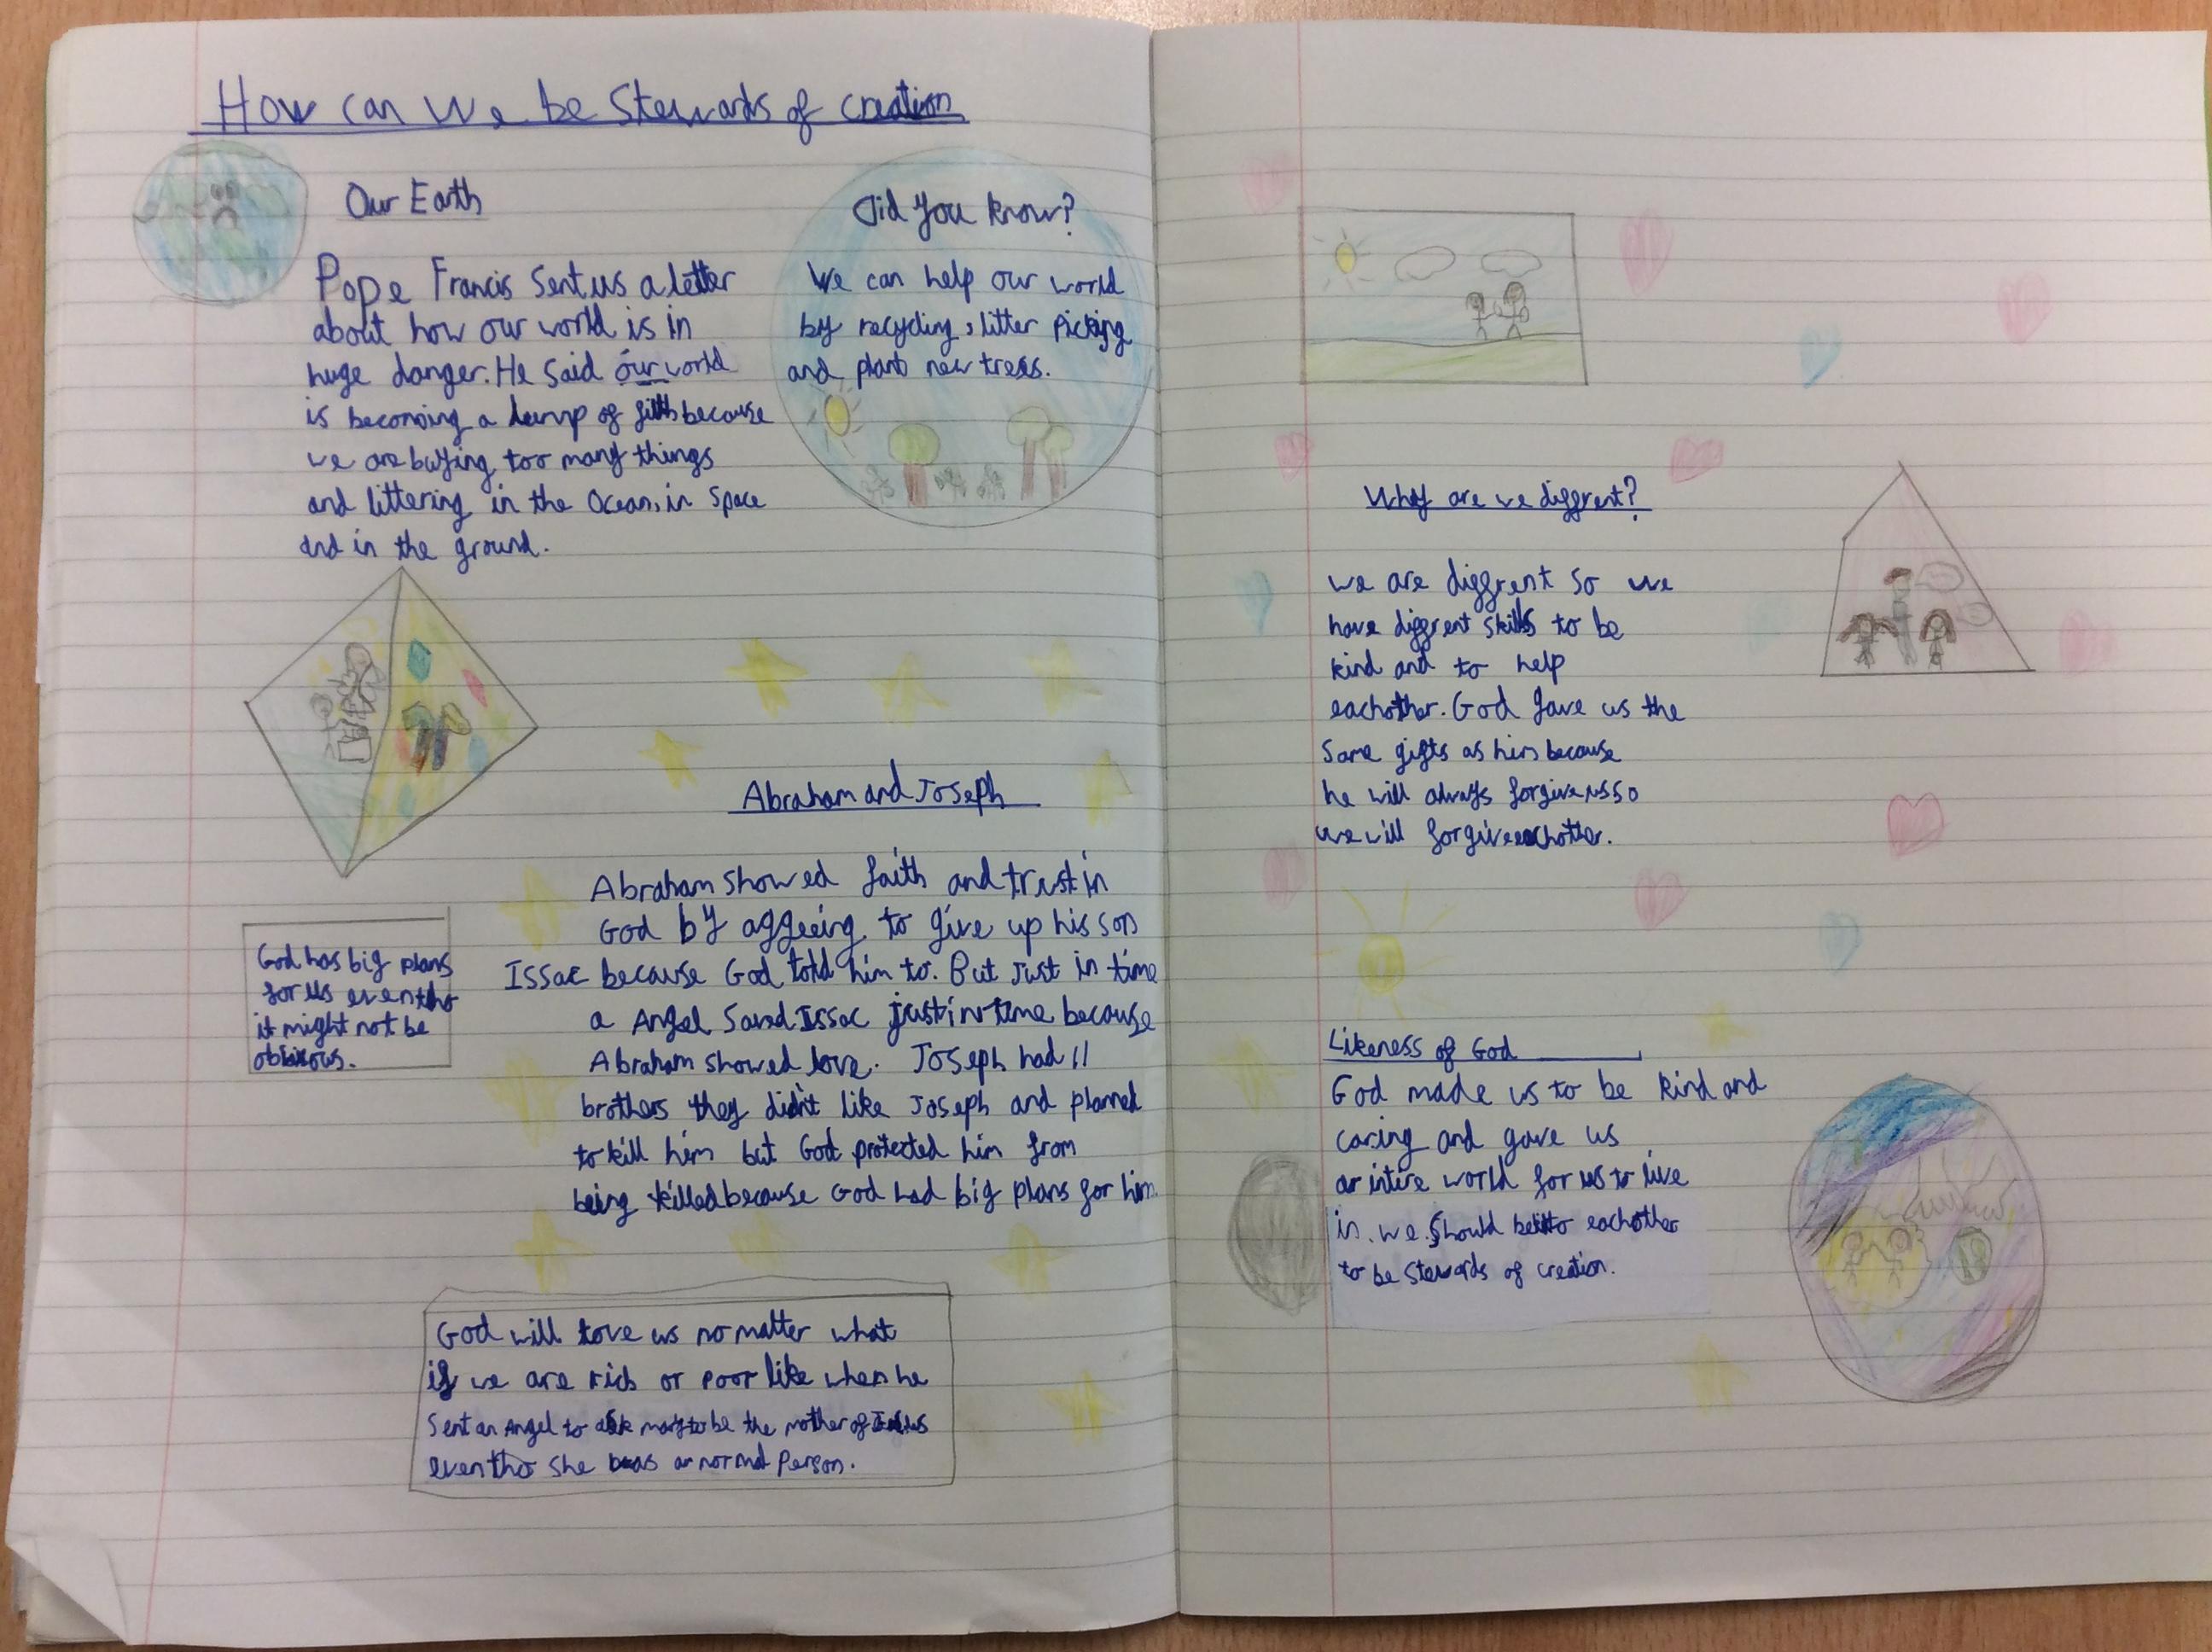 How can We be Stewards of creation
Our Earth
Pope Francis Sent us a letter
about how our world is in
huge danger. He Said our world
is becoming a lump of filth because
we are buying too many things
and littering in the Ocean, in Space
and in the ground.
Did you know?
We can help our world
by recycling, litter Picking
and plant new tress.
Abraham and Joseph
Abraham showed faith and trust in
God by aggeeing to give up his son
Issac because God told him to. But Just in time
a Angel Saved Issac just in time because
Abraham showed love. Joseph had 11
brothers they didn't like Joseph and planned
to kill him but God protected him from
being killed because God had big plans for him.
God has big plans
for us even tho
it might not be
God will love us no matter what
if we are rich or poor like when he
Sent an Angel to ask mary to be the mother of Jesus
even tho she was a normal Person.
Why are we diffrent?
we are diffrent so we
have diffrent skills to be
kind and to help
eachother. God gave us the
Same gifts as him because
he will always forgive us so
we will forgive eachother.
Likeness of God
God made us to be kind and
caring and gave us
an intire world for us to live
in. we should be to eachother
to be Stewards of creation.